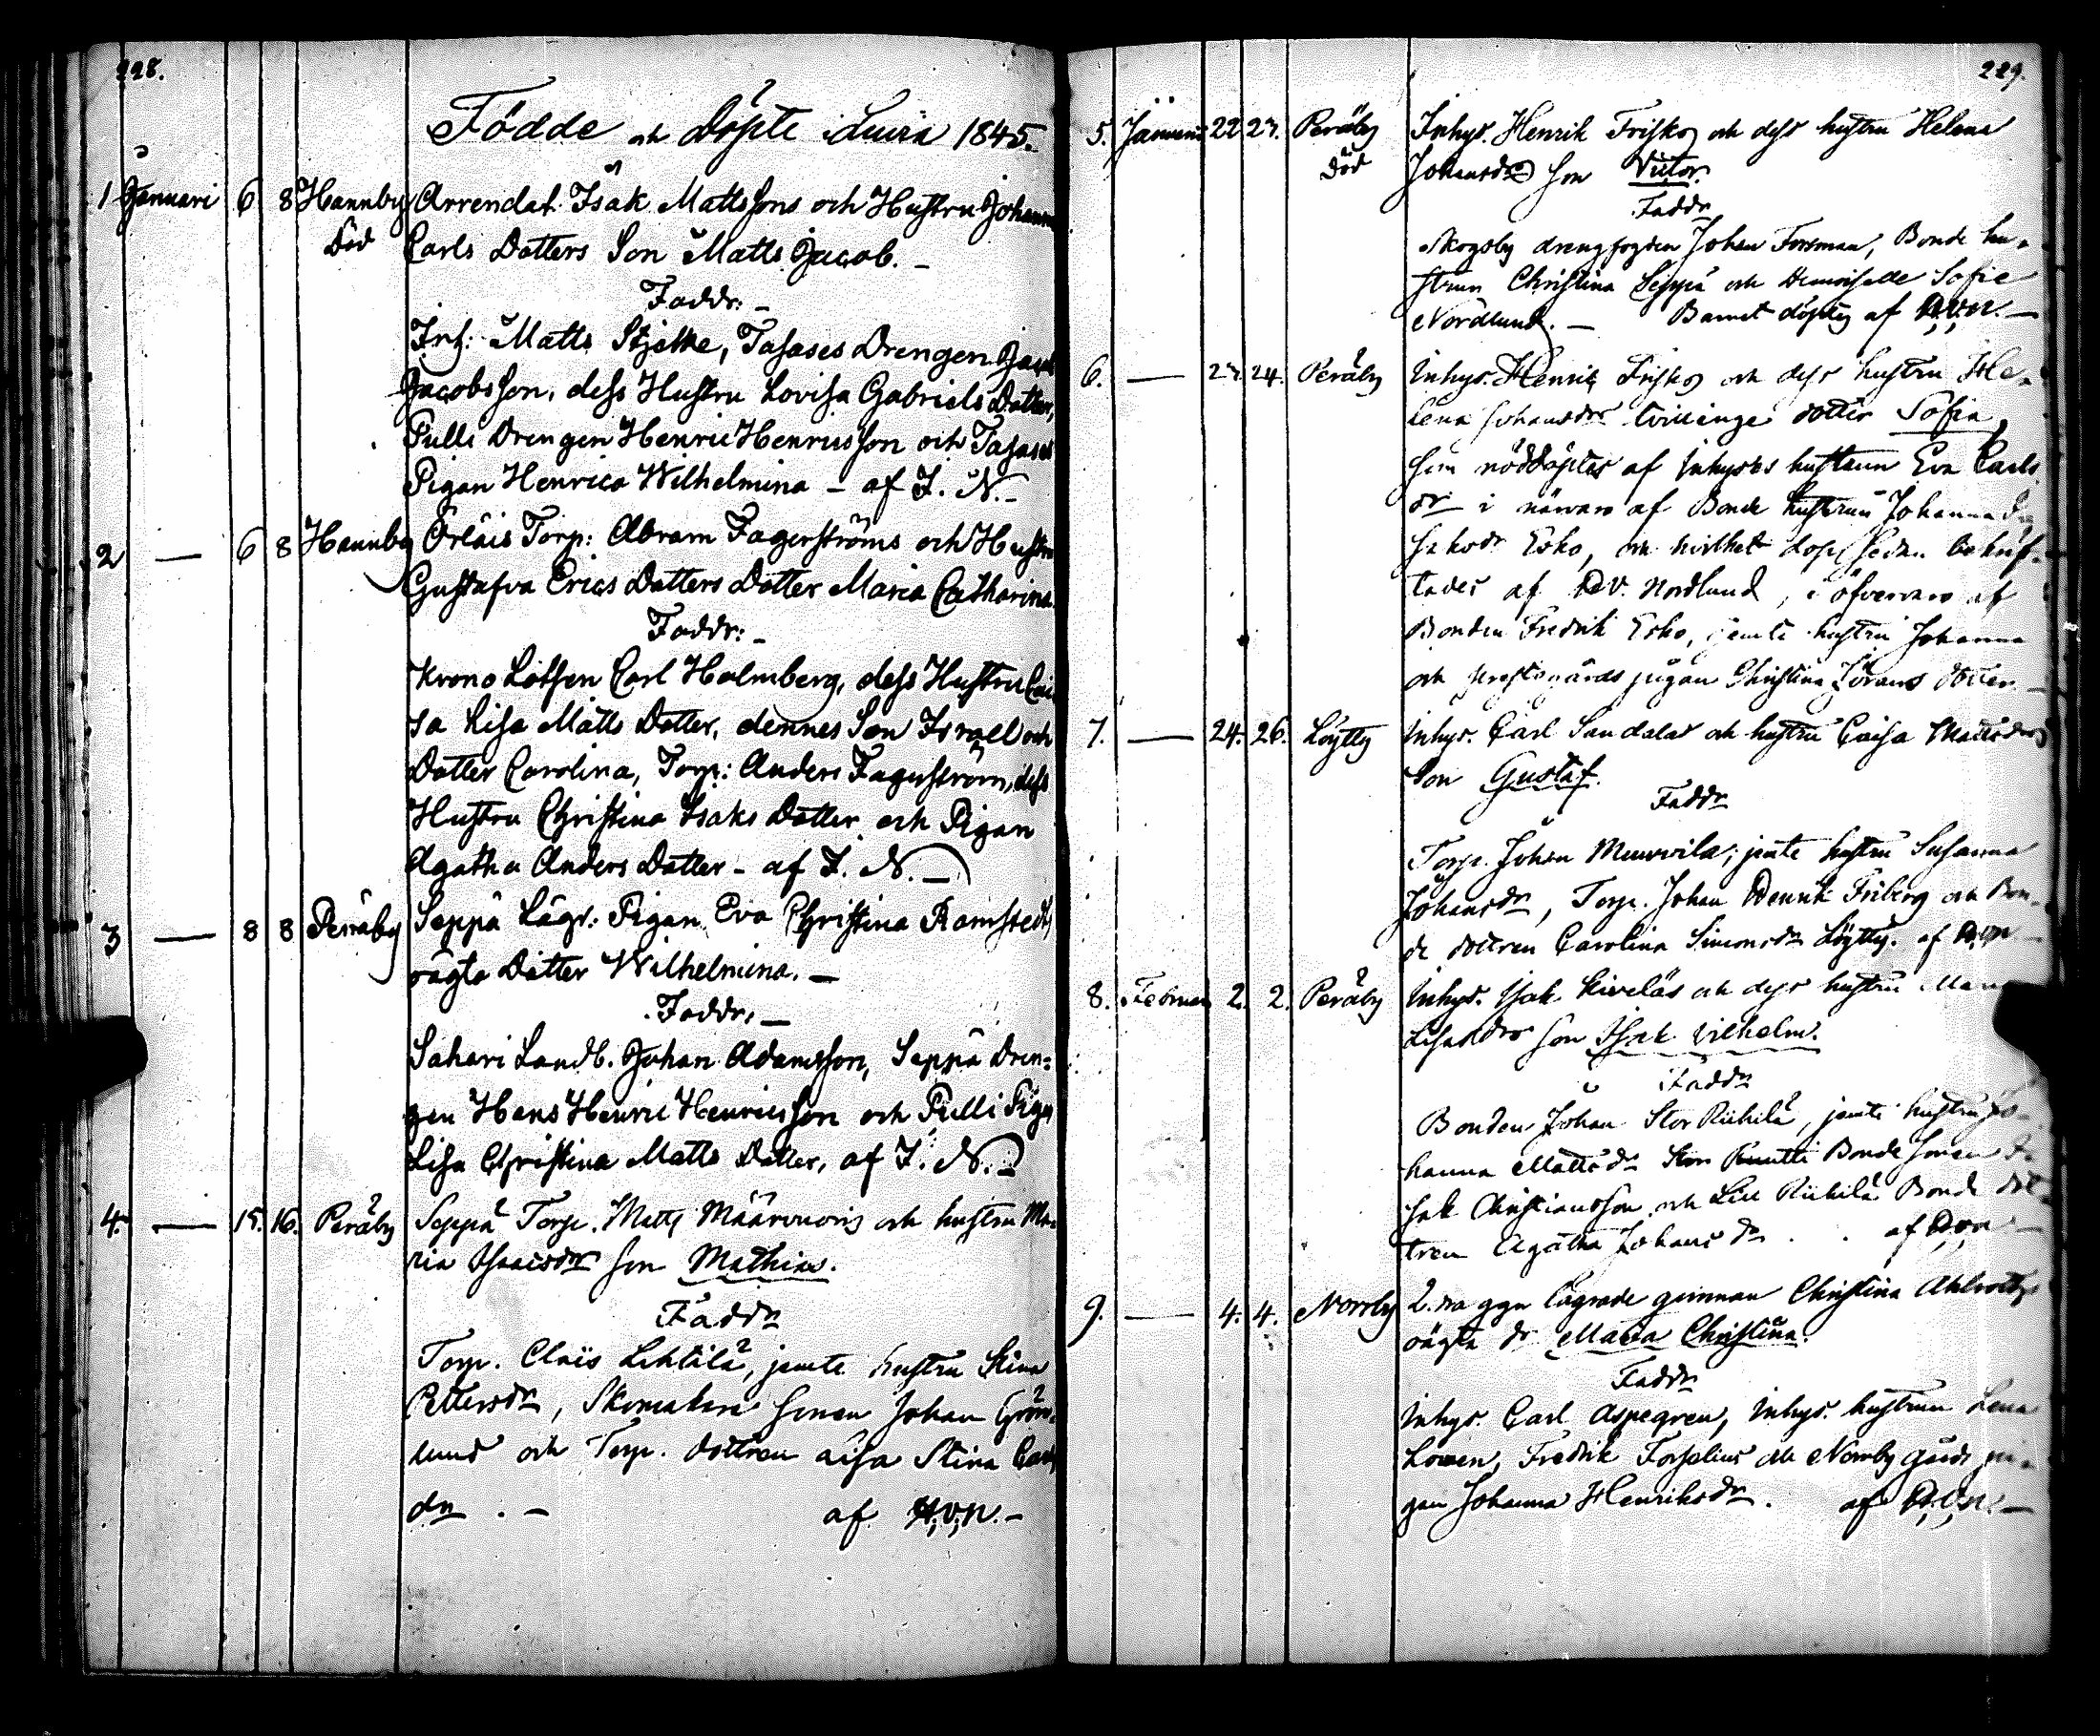 228.
Födde och Döpte i Luvia 1845.
1 Januari 6 8 Hannby Arrendat. Isak Mattssons och Hustru Johanna
Död Carls Dotters Son Matts Jacob. –
Faddr: –
Inh: Matts Stjelke, Tasases Drengen Jacob
Jacobsson, dess Hustru Lovisa Gabriels Dotter,
Pulli Drengen Henric Henricsson och Tasases
Pigan Henrica Wilhelmina – af I. N. –
2 — 6 8 Hannby Torp: Abram Fagerströms och Hustru
Gustafva Erics Dotters Dotter Maria Catharina.
Faddr: –
Krono Lotsen Carl Holmberg, dess Hustru Cai
sa Lisa Matts Dotter, dennes Son Israel och
Dotter Carolina, Torp: Anders Fagerström, dess
Hustru Christina Isaks Dotter och Pigan
Agatha Anders Dotter – af I. N. —
3 — 8 8 Peräby Seppä Lägr: Pigan Eva Christina Ramstedts
oägta Dotter Wilhelmina. —
Faddr, —
Sahari Landb. Johan Adamsson, Seppä Dren=
gen Hans Henric Henricsson och Pulli Pigan
Lisa Christina Matts Dotter, af I. N. –
4. — 15. 16. Peräby Seppä Torp. Matts och hustru Ma-
ria Isaacsdr son Mathias.
Faddr
Torp. Claës Lehtilä, jemte hustru Stina
Pettersdr, Skomakare sonen Johan Grön-
lund och Torp. dottren Caisa Stina Carls
dr . – af H.V.N. –
229.
5. Januari 22 23. Peräby Inhys. Henrik Frisk och dess hustru Helena
Död Johansdr son Victor.
Faddr
Skogsby drengfogden Johan Forsman, Bonde hu-
strun Christina Seppä och Demoiselle Sofie
Nordlund. – Barnet döptes af D.V.N. –
6. — 23. 24. Peräby Inhys. Henrik Frisk och dess hustru He-
lena Johansdr tvillinge dotter Sofia,
som nöddöptes af Inhyses hustrun Eva Carls
dr i närvaro af Bonde hustrun Johanna
Esko, och hvilket dop sedan bekräf-
tades af D.V. Nordlund, i öfvervaro af
Bonden Fredrik Esko, jemte hustru Johanna
och prestegårds pigan Christina Jörans dotter. –
7. — 24. 26. Löytty Inhys. Carl Sandalas och hustru Caisa Mattsdrs
son Gustaf.
Faddr
Torp. Johan , jemte hustru Susanna
Johansdr, Torp. Johan Henrik Friberg och Bon-
de dottren Carolina Simonsdr Löytty. af D.V.N. –
8. Februari 2. 2. Peräby Inhys. Isak Kiveläs och dess hustru
Lisa drs son Isak Vilhelm.
Faddr
Bonden Johan Stor Riihilä, jemte hustru Jo-
hanna Mattsdr Bonde sonen I-
sak Christiansson och Lill Riihilä Bonde dot-
tren Agatha Johansdr . . af D.V.N. –
9. — 4. 4. Norrby 2.dra ggn lägrade qvinnan Christina
oägta dr Maria Christina.
Faddr
Inhys. Carl Aspegren, Inhys. hustrun Lena
Fredrik Forselius och Norrby gårds pi-
gan Johanna Henriksdr. af D.V.N. –